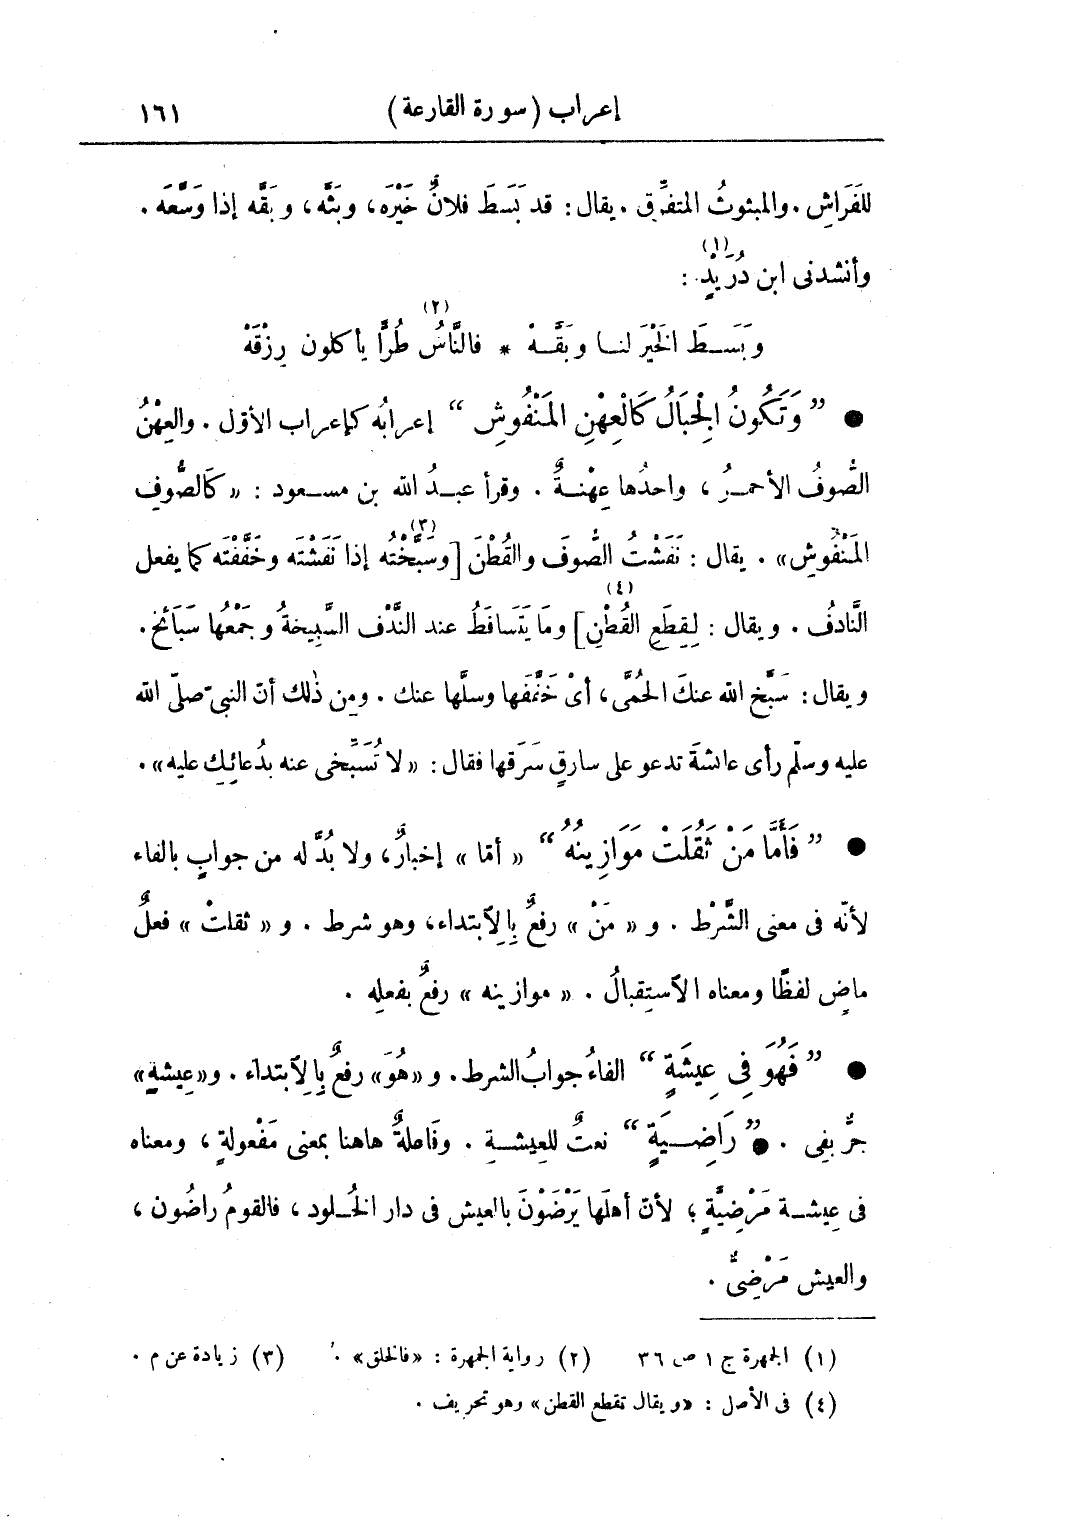 إعراب (سورة القارعة) ١٦١
للفَرَاشِ. والمبثوثُ المتفرِّق. يقال: قد بَسَطَ فلانٌ خَيْرَه، وبَثَّه، وبَقَّه إذا وَسَّعَه.
وأنشدنى ابن دُرَيْدٍ (١) :
وبَسَطَ الخَيْرَ لنا وبَقَّهْ * فالنَّاسُ (٢) طُرًّا يأكلون رِزْقَهْ
● ”وَتَكُونُ الجِبَالُ كَالْعِهْنِ المَنْفُوشِ“ إعرابُه كإعراب الأوّل. والعِهْنُ
الصُّوفُ الأحمرُ، واحدُها عِهْنةٌ. وقرأ عبدُ الله بن مسعود: «كَالصُّوفِ
المَنْفُوشِ». يقال: نَفَشْتُ الصُّوفَ والقُطْنَ [وسَبَّخْتُه (٣) إذا نَفَشْتَه وخَفَّفْتَه كما يفعل
النَّادفُ. ويقال: لِقِطَعِ القُطْنِ (٤)] ومَا يَتَسَاقَطُ عند النَّدْف السَّبِيخةُ وجَمْعُها سَبَائخ.
ويقال: سَبَّخ الله عنكَ الحُمَّى، أىْ خَفَّفَها وسلَّها عنك. ومِن ذٰلك أنّ النبىّ صلّى الله
عليه وسلّم رأى عائشةَ تدعو على سارقٍ سَرَقها فقال: «لا تُسَبِّخى عنه بدُعائِكِ عليه».
● ”فَأَمَّا مَنْ ثَقُلَتْ مَوَازِينُهُ“ «أمّا» إخبارٌ، ولا بُدَّ له من جوابٍ بالفاء
لأنّه فى معنى الشَّرْط. و«مَنْ» رفعٌ بِالِٱبتداء، وهو شرط. و«ثقلتْ» فعلٌ
ماضٍ لفظًا ومعناه الٱستِقبالُ. «موازينه» رفعٌ بفعلِه.
● ”فَهُوَ فِى عِيشَةٍ“ الفاءُ جوابُ الشرط. و«هُوَ» رفعٌ بِالِٱبتداء. و«عِيشةٍ»
جرٌّ بفِى. ● ”رَاضِيَةٍ“ نعتٌ للعِيشةِ. وفَاعلةٌ هاهنا بمعنى مَفْعولةٍ، ومعناه
فى عِيشة مَرْضِيَّةٍ؛ لأنّ أهلَها يَرْضَوْنَ بالعيش فى دار الخُلود، فالقومُ راضُون،
والعيش مَرْضِىٌّ.
(١) الجمهرة ج ١ ص ٣٦ (٢) رواية الجمهرة: «فالخلق». (٣) زيادة عن م.
(٤) فى الأصل: «ويقال تقطع القطن» وهو تحريف.